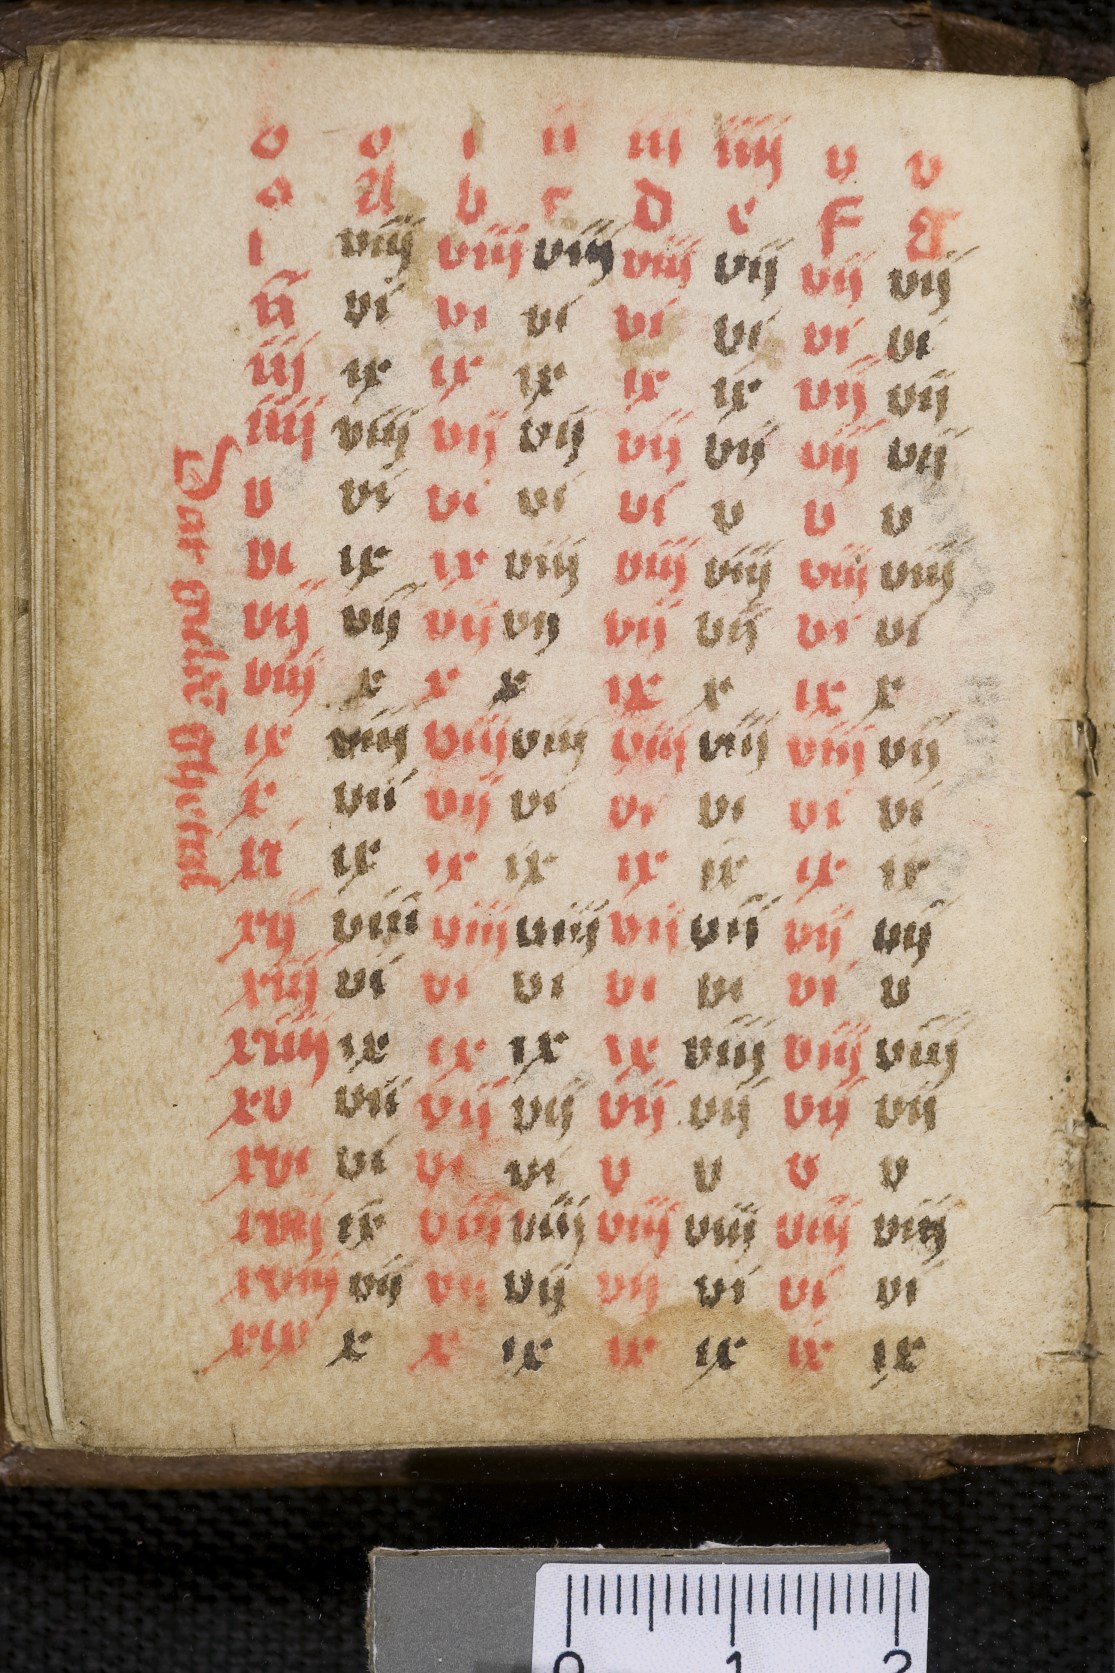 o o i ii iii iiij v v
a A b c D e F G
i viij viij viij viij vij vij vij
ii vi vi vi vi vi vi vi
iij ix ix ix ix ix vij vij
iiij viij vij vij vij vij vij vij
v vi vi vi vi v v v
vi ix ix viij viij viij viij viij
vij vij vij vij vij vij vi vi
viij x x x ix x ix x
ix viij viij viij viij viij viij vij
x vii vij vi vi vi vi vi
xi ix ix ix ix ix ix ix
xij viii viij viij vij vij vij vij
xiij vi vi vi vi vi vi v
xiiij ix ix ix ix viij viij viij
xv vii vij vij vij vij vij vij
xvi vi vi vi v v v v
xvij ix viij viij viij viij viij viij
xviij vij vij vij vij vi vi vi
xix x x ix ix ix ix ix
0 1 2